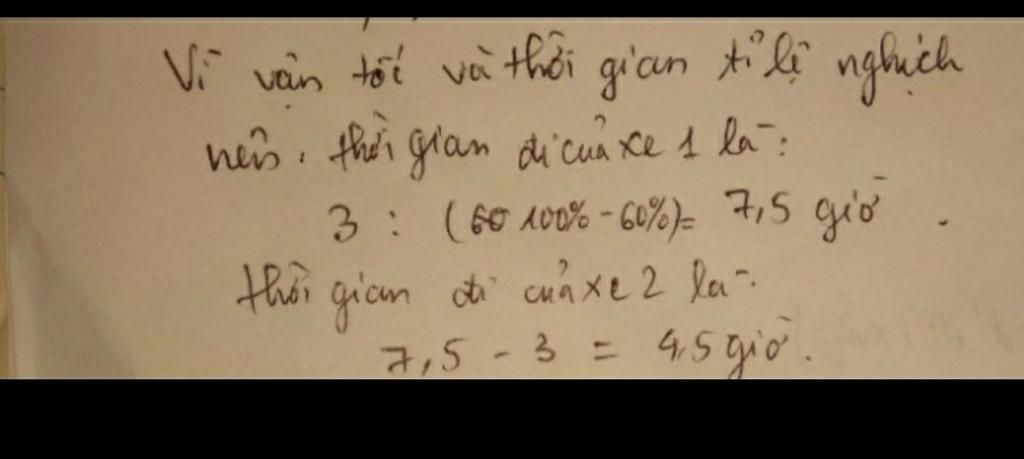 Vì vận tốc và thời gian tỉ lệ nghịch
nên. thời gian đi của xe 1 là:
3 : (60 100% - 60%) = 7,5 giờ.
thời gian đi của xe 2 là:
7,5 - 3 = 4,5 giờ.